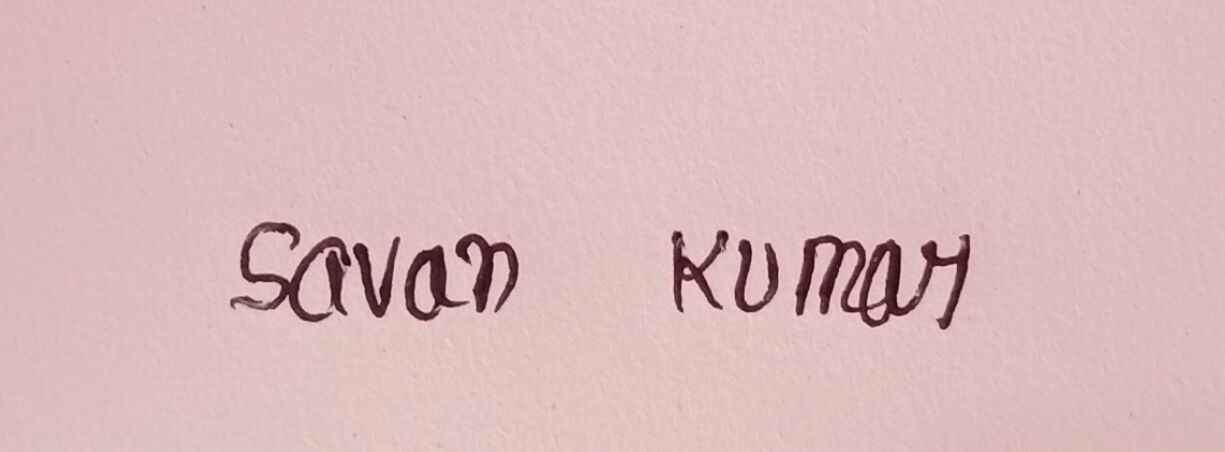 Savan Kumar